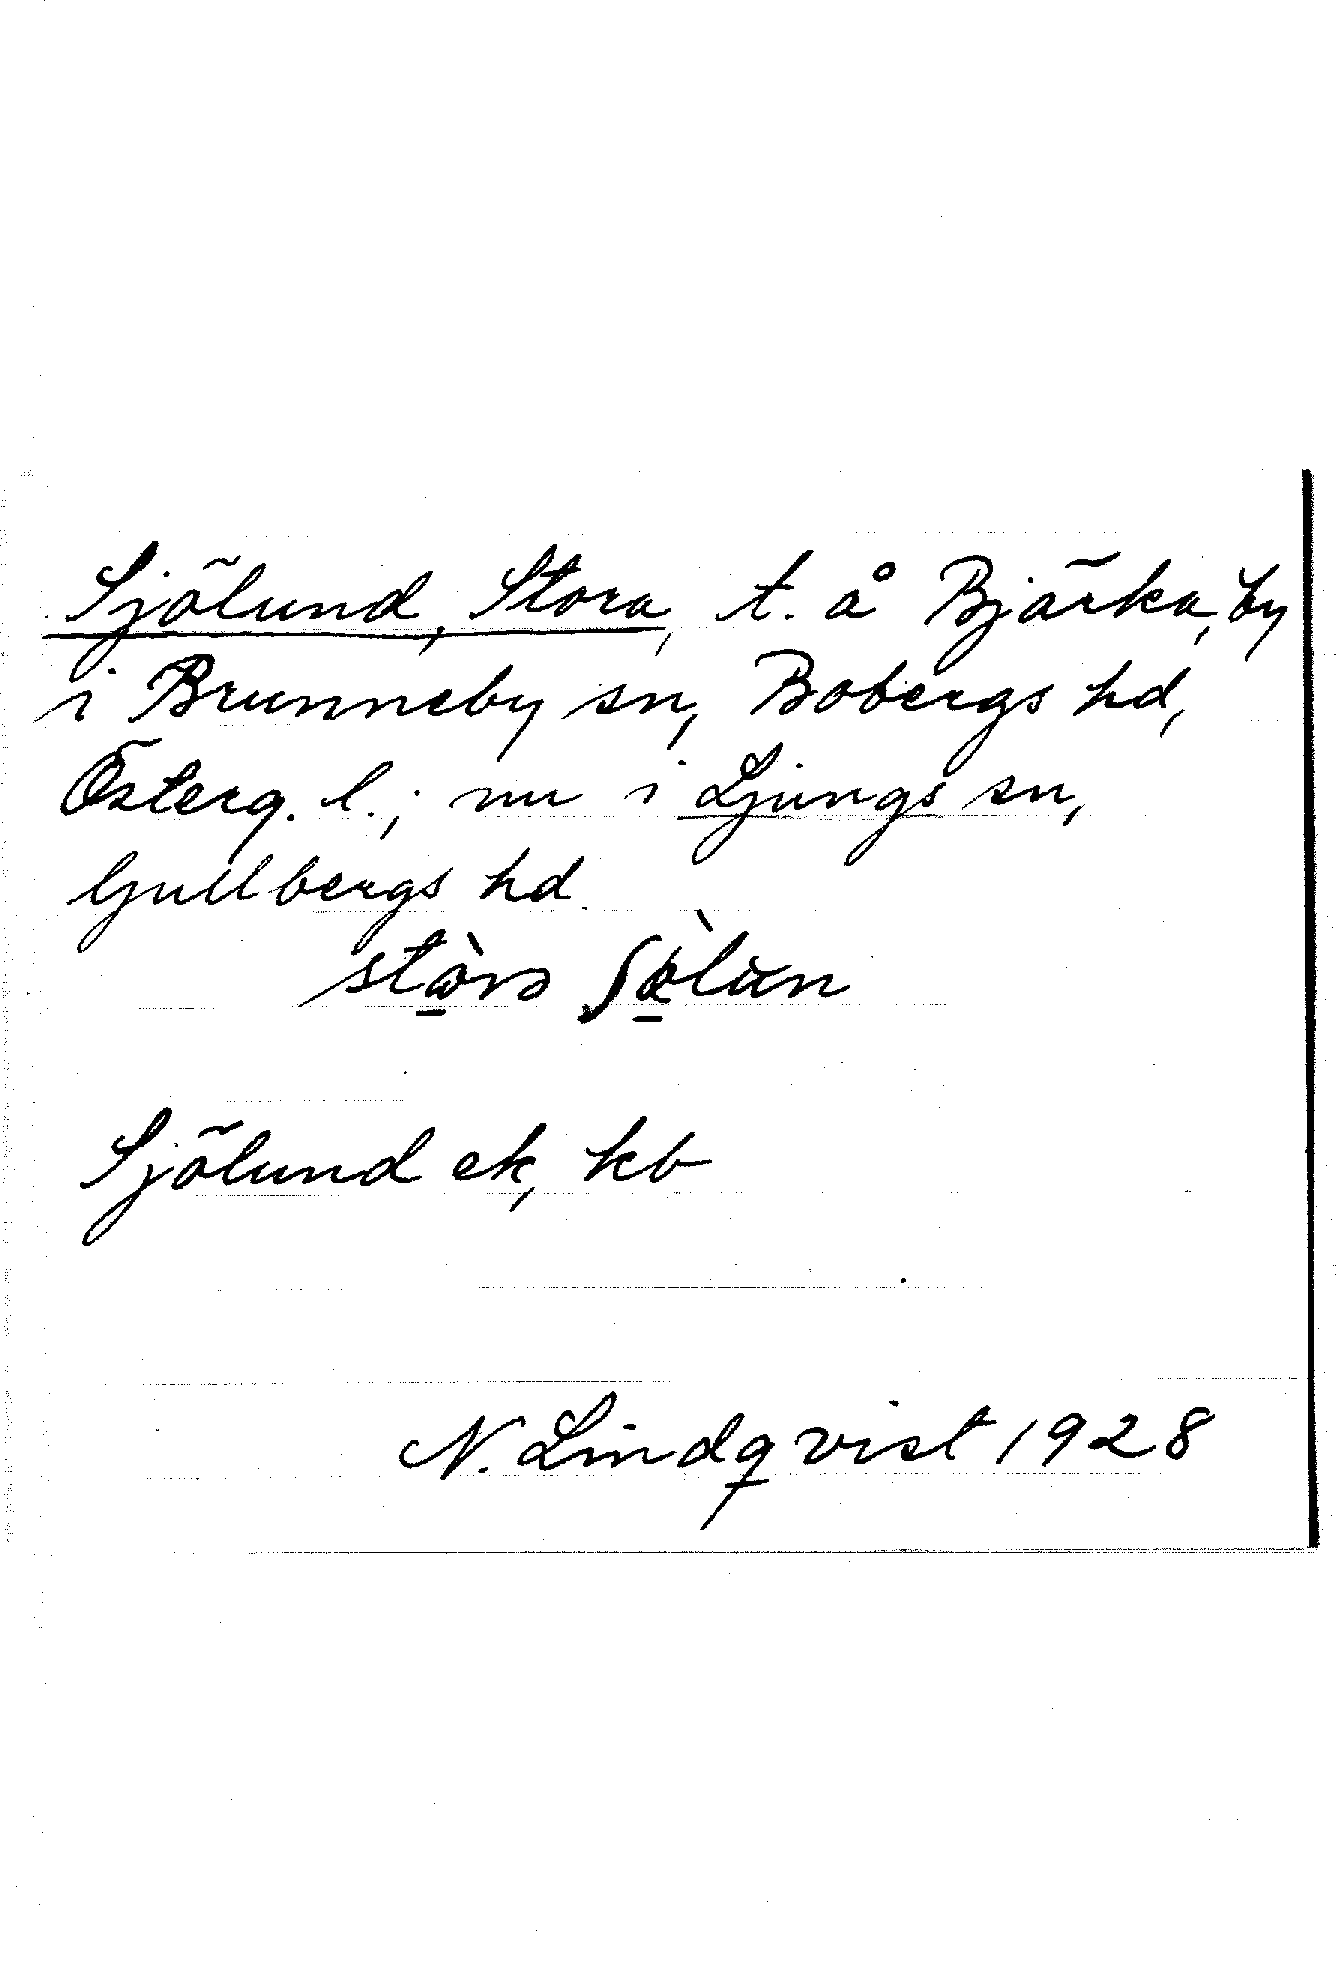 Sjölund, Stora, t. å Bjärka, by
i Brunneby sn, Bobergs hd,
Österg. l.; nu i Ljungs sn,
Gullbergs hd
Sjölund ek, kb
N. Lindqvist 1928